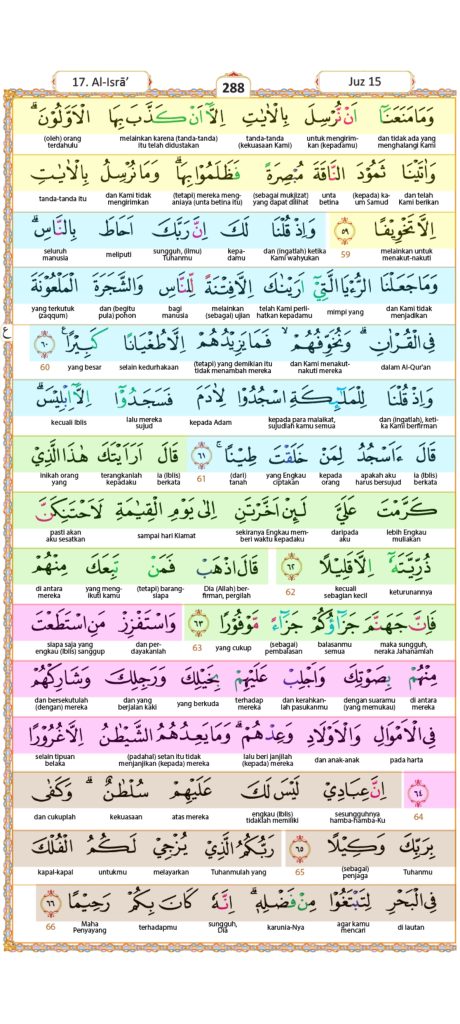 17. Al-Isrā’
288
Juz 15
وَمَا مَنَعَنَآ اَنْ نُّرْسِلَ بِالْاٰيٰتِ اِلَّآ اَنْ كَذَّبَ بِهَا الْاَوَّلُوْنَۗ
dan tidak ada yang menghalangi Kami
untuk mengirimkan (kepadamu)
tanda-tanda (kekuasaan Kami)
melainkan karena (tanda-tanda) itu telah didustakan
(oleh) orang terdahulu
وَاٰتَيْنَا ثَمُوْدَ النَّاقَةَ مُبْصِرَةً فَظَلَمُوْا بِهَاۗ وَمَا نُرْسِلُ بِالْاٰيٰتِ
dan telah Kami berikan
(kepada) kaum Samud
unta betina
(sebagai mukjizat) yang dapat dilihat
(tetapi) mereka menganiaya (unta betina itu)
dan Kami tidak mengirimkan
tanda-tanda itu
اِلَّا تَخْوِيْفًا ٥٩ وَاِذْ قُلْنَا لَكَ اِنَّ رَبَّكَ اَحَاطَ بِالنَّاسِۗ
melainkan untuk menakut-nakuti
59
dan (ingatlah) ketika Kami wahyukan
kepadamu
sungguh, (ilmu) Tuhanmu
meliputi
seluruh manusia
وَمَا جَعَلْنَا الرُّءْيَا الَّتِيْٓ اَرَيْنٰكَ اِلَّا فِتْنَةً لِّلنَّاسِ وَالشَّجَرَةَ الْمَلْعُوْنَةَ
dan Kami tidak menjadikan
mimpi yang
telah Kami perlihatkan kepadamu
melainkan (sebagai) ujian
bagi manusia
dan (begitu pula) pohon
yang terkutuk (zaqqum)
ع
فِى الْقُرْاٰنِۗ وَنُخَوِّفُهُمْۙ فَمَا يَزِيْدُهُمْ اِلَّا طُغْيَانًا كَبِيْرًاࣖ ٦٠
dalam Al-Qur'an
dan Kami menakut-nakuti mereka
(tetapi) yang demikian itu tidak menambah mereka
selain kedurhakaan
yang besar
60
وَاِذْ قُلْنَا لِلْمَلٰۤىِٕكَةِ اسْجُدُوْا لِاٰدَمَ فَسَجَدُوْٓا اِلَّآ اِبْلِيْسَۗ
dan (ingatlah), ketika Kami berfirman
kepada para malaikat, sujudlah kamu semua
kepada Adam
lalu mereka sujud
kecuali Iblis
قَالَ ءَاَسْجُدُ لِمَنْ خَلَقْتَ طِيْنًاۚ ٦١ قَالَ اَرَاَيْتَكَ هٰذَا الَّذِيْ
ia (Iblis) berkata
apakah aku harus bersujud
kepada orang yang Engkau ciptakan
(dari) tanah
61
ia (Iblis) berkata
terangkanlah kepadaku
inikah orang yang
كَرَّمْتَ عَلَيَّ لَىِٕنْ اَخَّرْتَنِ اِلٰى يَوْمِ الْقِيٰمَةِ لَاَحْتَنِكَنَّ
lebih Engkau muliakan
daripada aku
sekiranya Engkau memberi waktu kepadaku
sampai hari Kiamat
pasti akan aku sesatkan
ذُرِّيَّتَهٗٓ اِلَّا قَلِيْلًا ٦٢ قَالَ اذْهَبْ فَمَنْ تَبِعَكَ مِنْهُمْ
keturunannya
kecuali sebagian kecil
62
Dia (Allah) berfirman, pergilah
(tetapi) barangsiapa
yang mengikuti kamu
di antara mereka
فَاِنَّ جَهَنَّمَ جَزَاۤؤُكُمْ جَزَاۤءً مَّوْفُوْرًا ٦٣ وَاسْتَفْزِزْ مَنِ اسْتَطَعْتَ
maka sungguh, neraka Jahanamlah
balasanmu semua
(sebagai) pembalasan
yang cukup
63
dan perdayakanlah
siapa saja yang engkau (Iblis) sanggup
مِنْهُمْ بِصَوْتِكَ وَاَجْلِبْ عَلَيْهِمْ بِخَيْلِكَ وَرَجِلِكَ وَشَارِكْهُمْ
di antara mereka
dengan suaramu (yang memukau)
dan kerahkanlah pasukanmu
terhadap mereka
yang berkuda
dan yang berjalan kaki
dan bersekutulah (dengan) mereka
فِى الْاَمْوَالِ وَالْاَوْلَادِ وَعِدْهُمْۗ وَمَا يَعِدُهُمُ الشَّيْطٰنُ اِلَّا غُرُوْرًا
pada harta
dan anak-anak
lalu beri janjilah (kepada) mereka
(padahal) setan itu tidak menjanjikan (kepada) mereka
selain tipuan belaka
٦٤ اِنَّ عِبَادِيْ لَيْسَ لَكَ عَلَيْهِمْ سُلْطٰنٌۗ وَكَفٰى
64
sesungguhnya hamba-hamba-Ku
engkau (Iblis) tidaklah memiliki
atas mereka
kekuasaan
dan cukuplah
بِرَبِّكَ وَكِيْلًا ٦٥ رَبُّكُمُ الَّذِيْ يُزْجِيْ لَكُمُ الْفُلْكَ
Tuhanmu
(sebagai) penjaga
65
Tuhanmulah yang
melayarkan
untukmu
kapal-kapal
فِى الْبَحْرِ لِتَبْتَغُوْا مِنْ فَضْلِهٖۗ اِنَّهٗ كَانَ بِكُمْ رَحِيْمًا ٦٦
di lautan
agar kamu mencari
karunia-Nya
sungguh, Dia
terhadapmu
Maha Penyayang
66